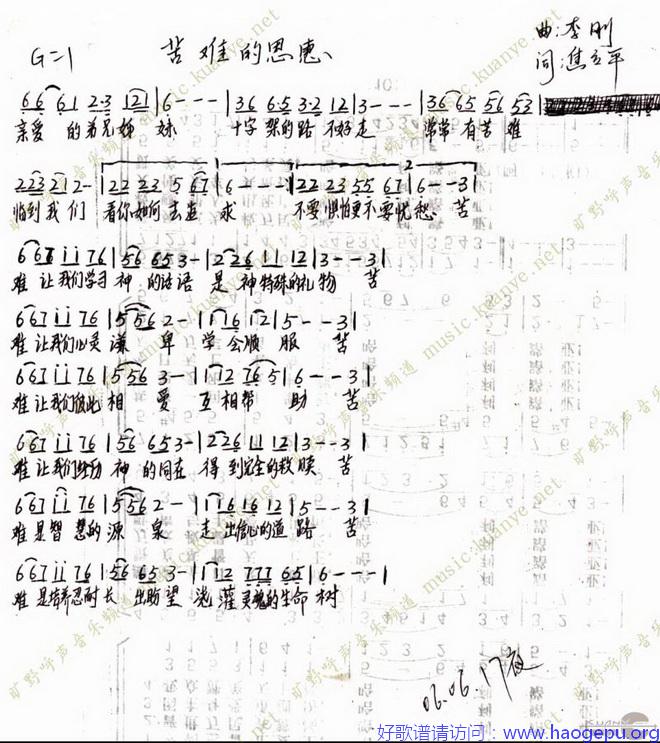 G=1
苦难的恩惠
曲:李刚
词:焦立平
6 6 6 1 2·3 1 2 1 | 6 - - - | 3 6 6·5 3·2 1 2 | 3 - - - | 3 6 6 5 5 6 5 3 |
亲爱 的弟兄姊 妹 十字 架的路 不好走 常常 有苦难
2 2 3 2 1 2 - | 2 2 2 3 5 6 7 | 6 - - - | 2 2 2 3 5 5 6 7 | 6 - - 3 |
临到我们 看你如何去追 求 不要惧怕更不要忧愁 苦
6 6 7 1 1 7 6 | 5 6 6 5 3 - | 2 2 6 1 1 1 2 | 3 - - 3 |
难 让我们学习 神 的话语 是 神特殊的礼物 苦
6 6 7 1 1 7 6 | 5 5 6 2 - | 1 1 6 1 2 | 5 - - 3 |
难 让我们心灵 谦 卑 学 会顺 服 苦
6 6 7 1 1 7 6 | 5 5 6 3 - | 1 1 2 7 6 5 | 6 - - 3 |
难 让我们彼此 相 爱 互 相帮 助 苦
6 6 7 1 1 7 6 | 5 6 6 5 3 - | 2 2 6 1 1 1 2 | 3 - - 3 |
难 让我们经历 神 的同在 得 到完全的救赎 苦
6 6 7 1 1 7 6 | 5 5 6 2 - | 1 1 6 1 6 1 2 | 5 - - 3 |
难 是智 慧的 源 泉 走 出信心的道 路 苦
6 6 7 1 1 7 6 | 5 6 6 5 3 - | 1 1 2 7 7 7 6 5 | 6 - - - |
难 是培养忍耐 长 出盼望 浇 灌灵魂的生命 树
06.06.17夜
旷野呼声音乐频道 music.kuanye.net
好歌谱请访问：www.haogepu.org